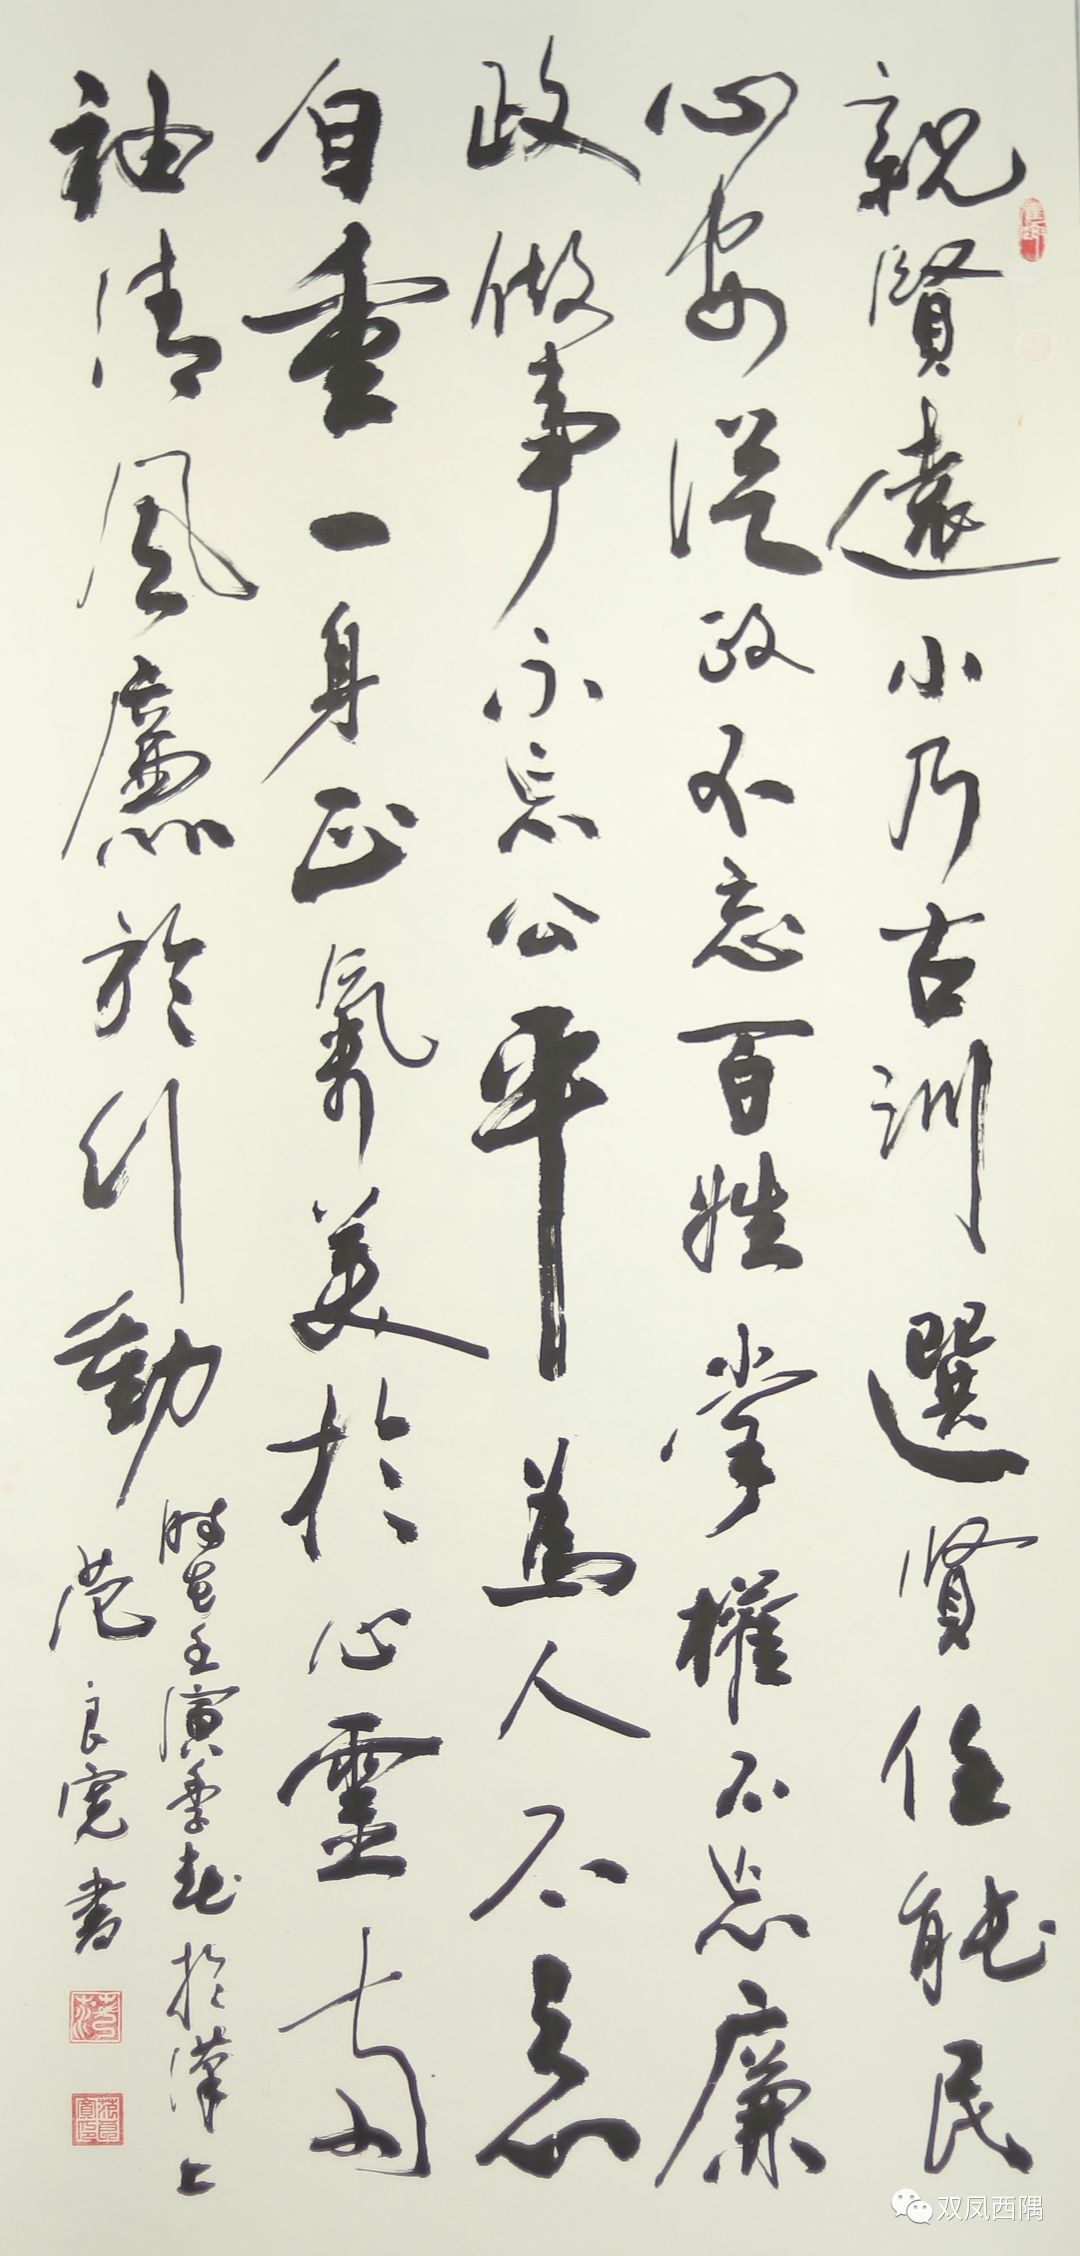 親賢遠小乃古訓選贤任能民
心安從政不忘百姓掌權不忘廉
政做事不忘公平為人不忘
自重一身正氣美於心靈兩
袖清風廉於行動
時在壬寅季春於漢上
范良寬書
双凤西隅